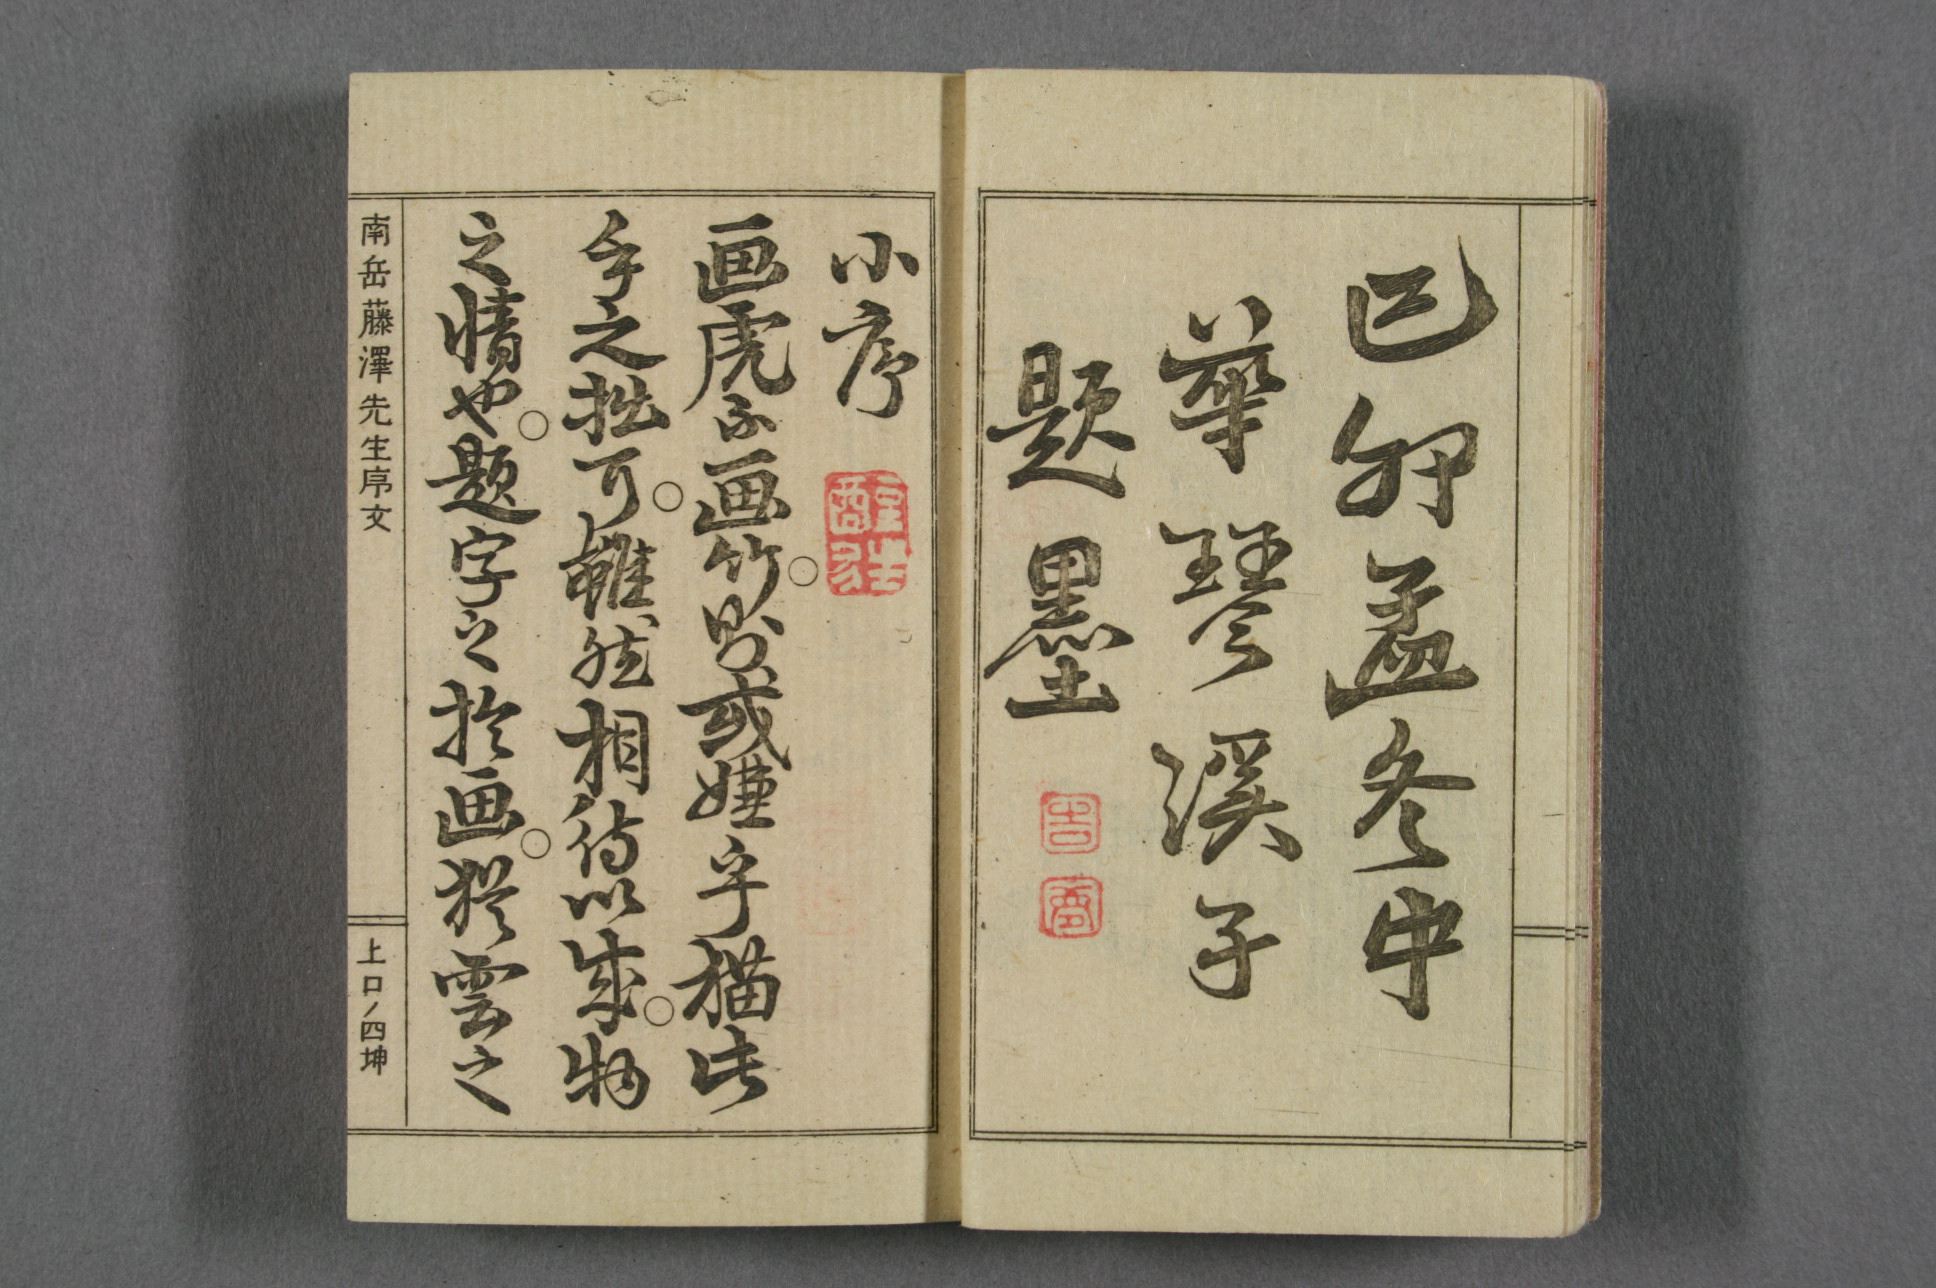 己卯孟冬中
華琴溪子
題墨
小序
画虎不画竹。則或嫌乎猫此
手之拙耳。雖然相待以成。物
之情也。題字之於画。猶雲之
南岳藤澤先生序文
上口ノ四坤